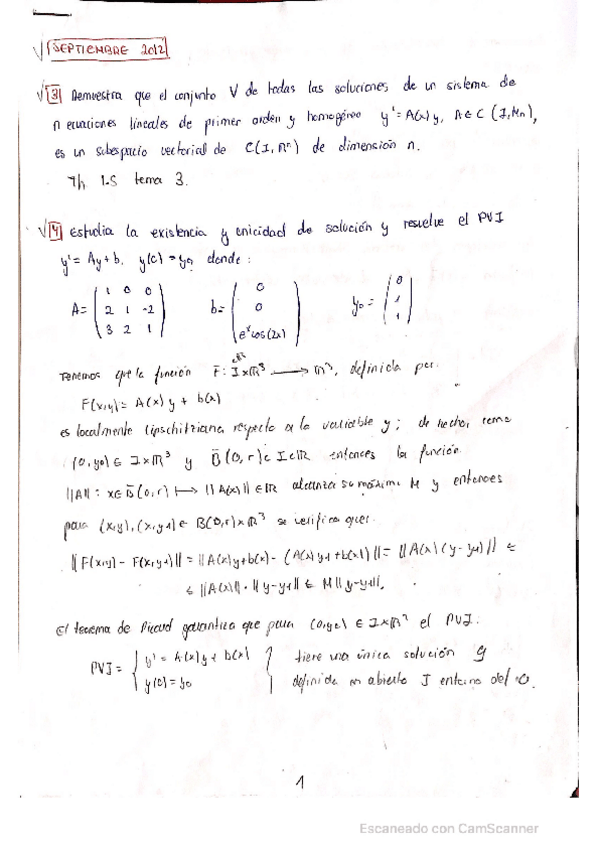 SEPTIEMBRE 2012
3 Demuestra que el conjunto V de todas las soluciones de un sistema de
n ecuaciones lineales de primer orden y homogéneo y' = A(x) y, A ∈ C (I, Mn),
es un subespacio vectorial de C(I, Rⁿ) de dimensión n.
Th 1.5 tema 3.
4 Estudia la existencia y unicidad de solución y resuelve el PVI
y' = Ay + b, y(0) = y0 donde:
A = ( 1 0 0 / 2 1 -2 / 3 2 1 ) b = ( 0 / 0 / eˣ cos(2x) ) y0 = ( 0 / 1 / 1 )
Tenemos que la función F: I x R³ → R³, definida por:
F(x,y) = A(x) y + b(x)
es localmente lipschitziana respecto a la variable y; de hecho, sea
(0, y0) ∈ I x R³ y B̄(0, r) ⊂ I ⊂ R entonces la función
||A|| : x ∈ B̄(0, r) ↦ ||A(x)|| ∈ R alcanza su máximo M y entonces
para (x,y), (x,y1) ∈ B(0,r) x R³ se verifica que:
|| F(x,y) - F(x,y1) || = || A(x)y + b(x) - (A(x) y1 + b(x)) || = || A(x) (y - y1) || ≤
≤ || A(x) || · || y - y1 || ≤ M || y - y1 ||.
El teorema de Picard garantiza que para (0, y0) ∈ I x R³ el PVI:
PVI = { y' = A(x) y + b(x) } tiene una única solución y
y(0) = y0 definida en abierto J entorno del 0.
1
Escaneado con CamScanner